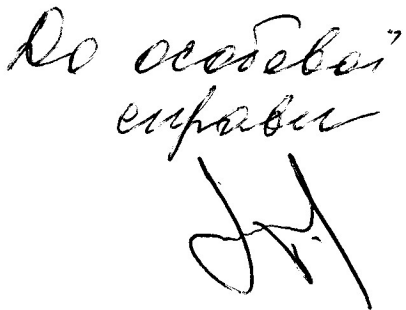 До особової
справи